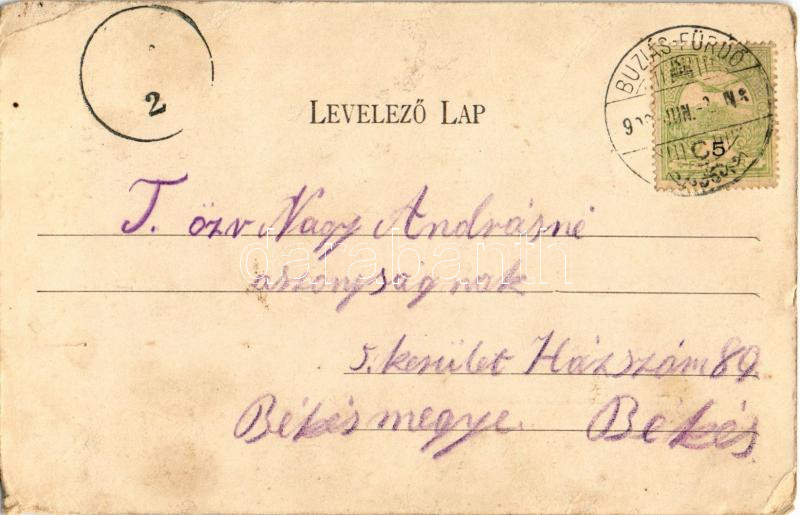 2
LEVELEZŐ LAP
BUZIÁS-FÜRDŐ
JUN.
5
T. özv Nagy Andrásné
asszonyságnak
5. kerület Házszám 89
Békésmegye. Békés
darabanth